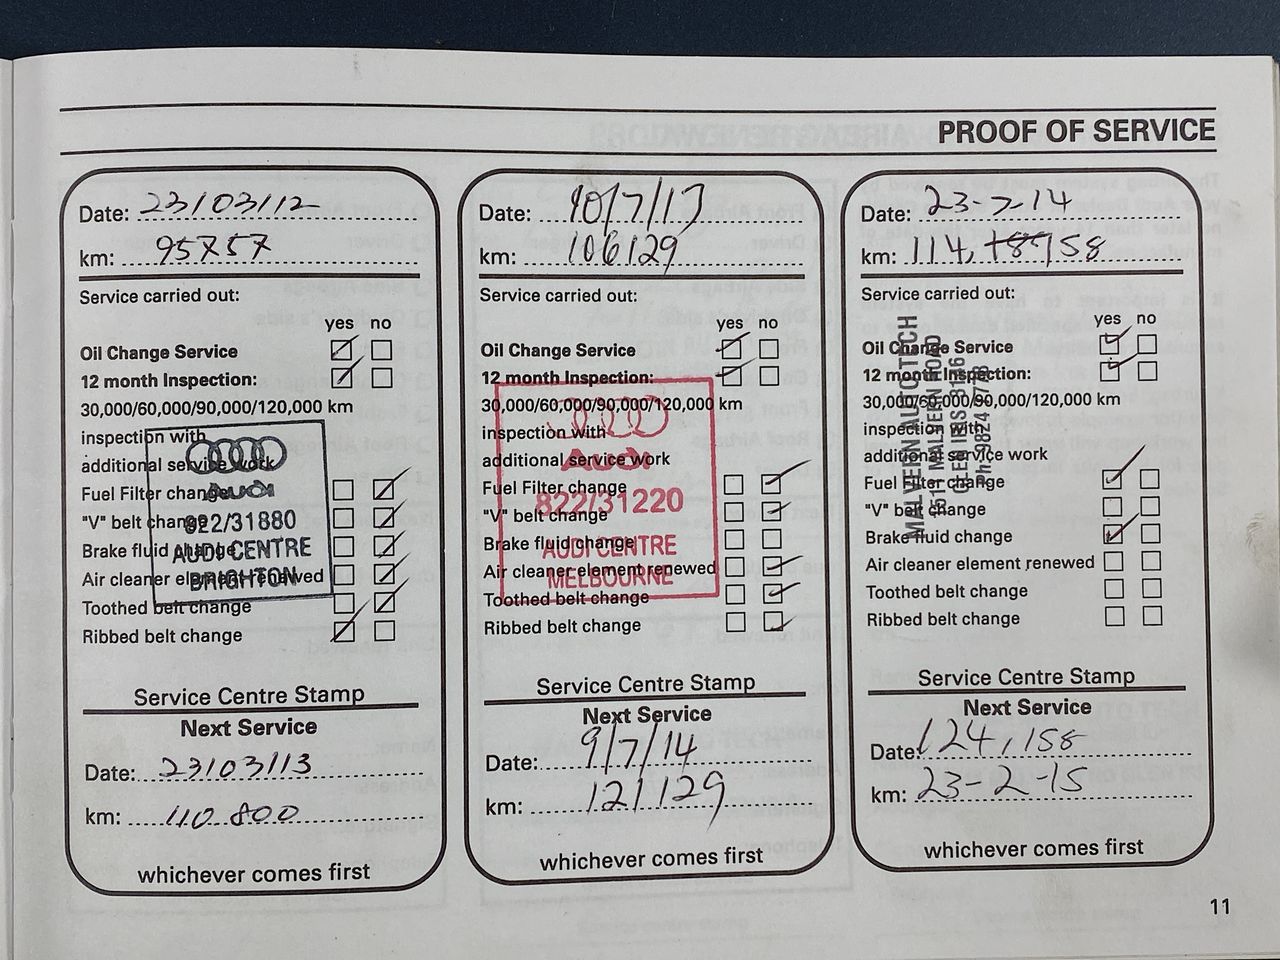 PROOF OF SERVICE
Date: 23/03/12
km: 95757
Service carried out:
yes no
Oil Change Service
12 month Inspection:
30,000/60,000/90,000/120,000 km
inspection with
additional service work
Fuel Filter change
"V" belt change
Brake fluid change
Air cleaner element renewed
Toothed belt change
Ribbed belt change
Audi
822/31880
AUDI CENTRE
BRIGHTON
Service Centre Stamp
Next Service
Date: 23/03/13
km: 110 800
whichever comes first
Date: 10/7/13
km: 106129
Service carried out:
yes no
Oil Change Service
12 month Inspection:
30,000/60,000/90,000/120,000 km
inspection with
additional service work
Fuel Filter change
"V" belt change
Brake fluid change
Air cleaner element renewed
Toothed belt change
Ribbed belt change
Audi
822/31220
AUDI CENTRE
MELBOURNE
Service Centre Stamp
Next Service
Date: 9/7/14
km: 121129
whichever comes first
Date: 23-7-14
km:
Service carried out:
yes no
Oil Change Service
12 month Inspection:
30,000/60,000/90,000/120,000 km
inspection with
additional service work
Fuel Filter change
"V" belt change
Brake fluid change
Air cleaner element renewed
Toothed belt change
Ribbed belt change
MALVERN AUTO TECH
GLEN IRIS 3146
Service Centre Stamp
Next Service
Date: 124,158
km: 23-2-15
whichever comes first
11